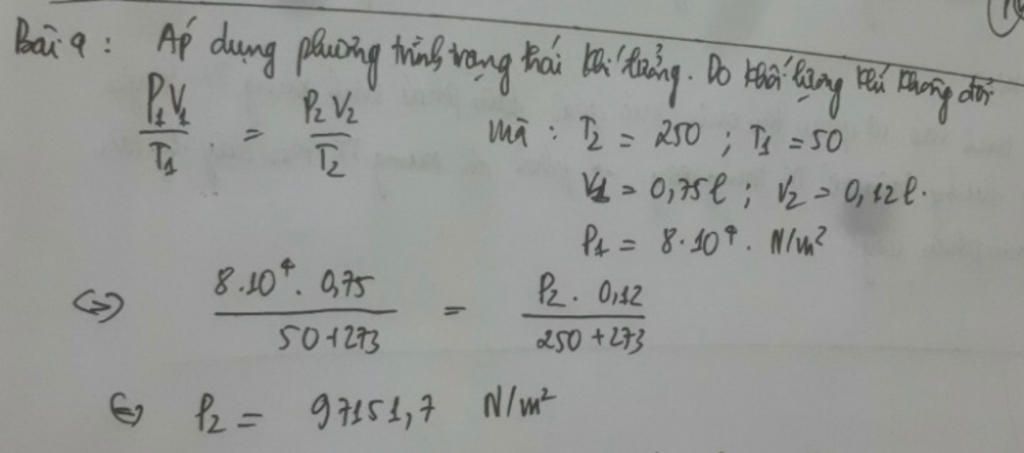 Bài 9 : Áp dụng phương trình trạng thái khí lí tưởng. Do khối lượng khí không đổi
P₁V₁/T₁ = P₂V₂/T₂ mà : T₂ = 250 ; T₁ = 50
V₁ = 0,75l ; V₂ = 0,12l.
P₁ = 8.10⁴. N/m²
<=> 8.10⁴. 0,75/50+273 = P₂. 0,12/250+273
<=> P₂ = 97151,7 N/m²